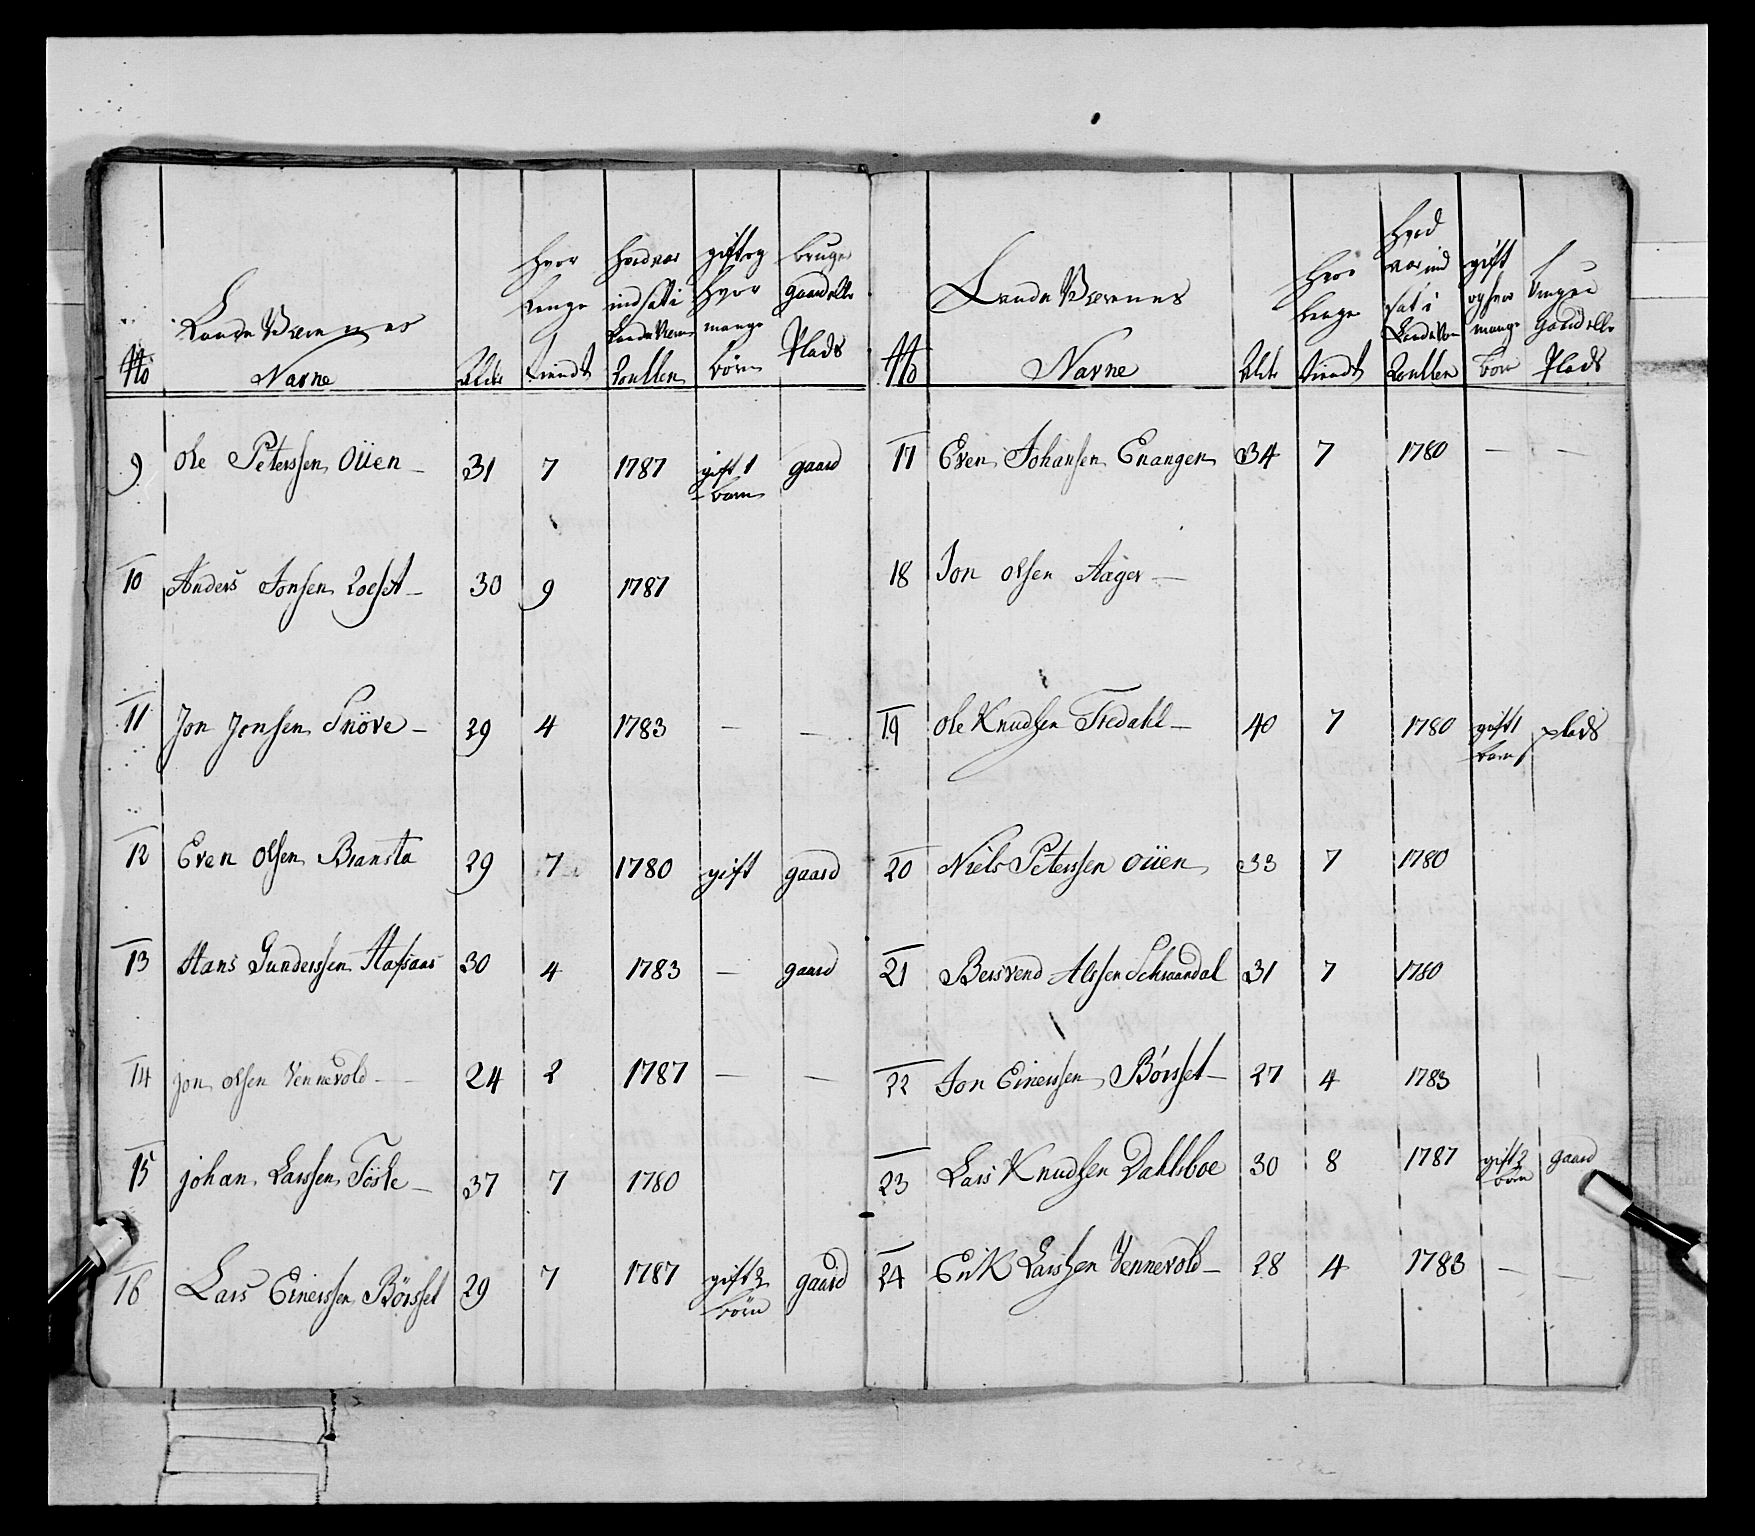 No
Lande Værnes
Navne
Alder
hvor
lenge
tiendt
hvad aar
indsatt i
Lande Værns
Roullen
gift og
hvor
mange
börn
bruger
gaard eller
Plads
9 Ole Peterssen Oüen 31 7 1787 gift 1 gaard
barn
10 Anders Jonsen Loeset 30 9 1787
11 Jon Jonsen Snöve 29 4 1783 — —
12 Even Olsen Bransta 29 7 1780 gift gaard
13 Hans Gunderssen Hafsaas 30 4 1783 — gaard
14 jon olsen Vennevold 24 2 1787 — —
15 johan Larssen Töste 37 7 1780
16 Lars Einerssen Börsset 29 7 1787 gift 2 gaard
börn
No
Lande Værnes
Navne
Alder
hvor
lenge
tiendt
hvad
aar ind
sat i
Lande Væ
Roullen
gift
og hvor
mange
börn
bruger
gaard eller
Plads
17 Even Johansen Enangen 34 7 1780 — —
18 Jon olsen Aager —
19 Ole Knudsen Tredahl — 40 7 1780 gift 1 plads
barn
20 Niels Peterssen Oüen 33 7 1780
21 Bersvend Alssen Schaandal 31 7 1780
22 Jon Einerssen Börsset — 27 4 1783
23 Lars Knudsen Dahlsboe 30 8 1787 gift 2 gaard
börn
24 Erik Larssen Vennevold — 28 4 1783 — —